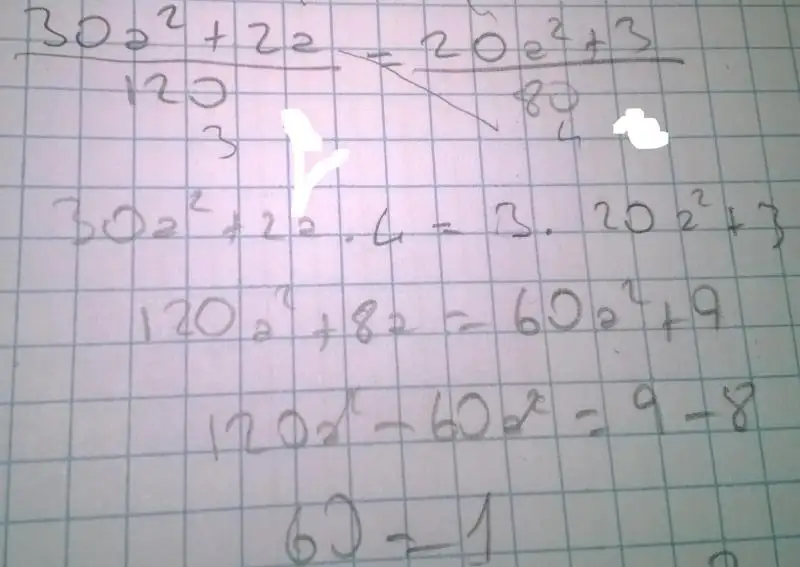 30a² + 2a = 20a² + 3
120 80
3 4
30a² + 2a · 4 = 3 · 20a² + 3
120a² + 8a = 60a² + 9
120a² - 60a² = 9 - 8
60 = 1